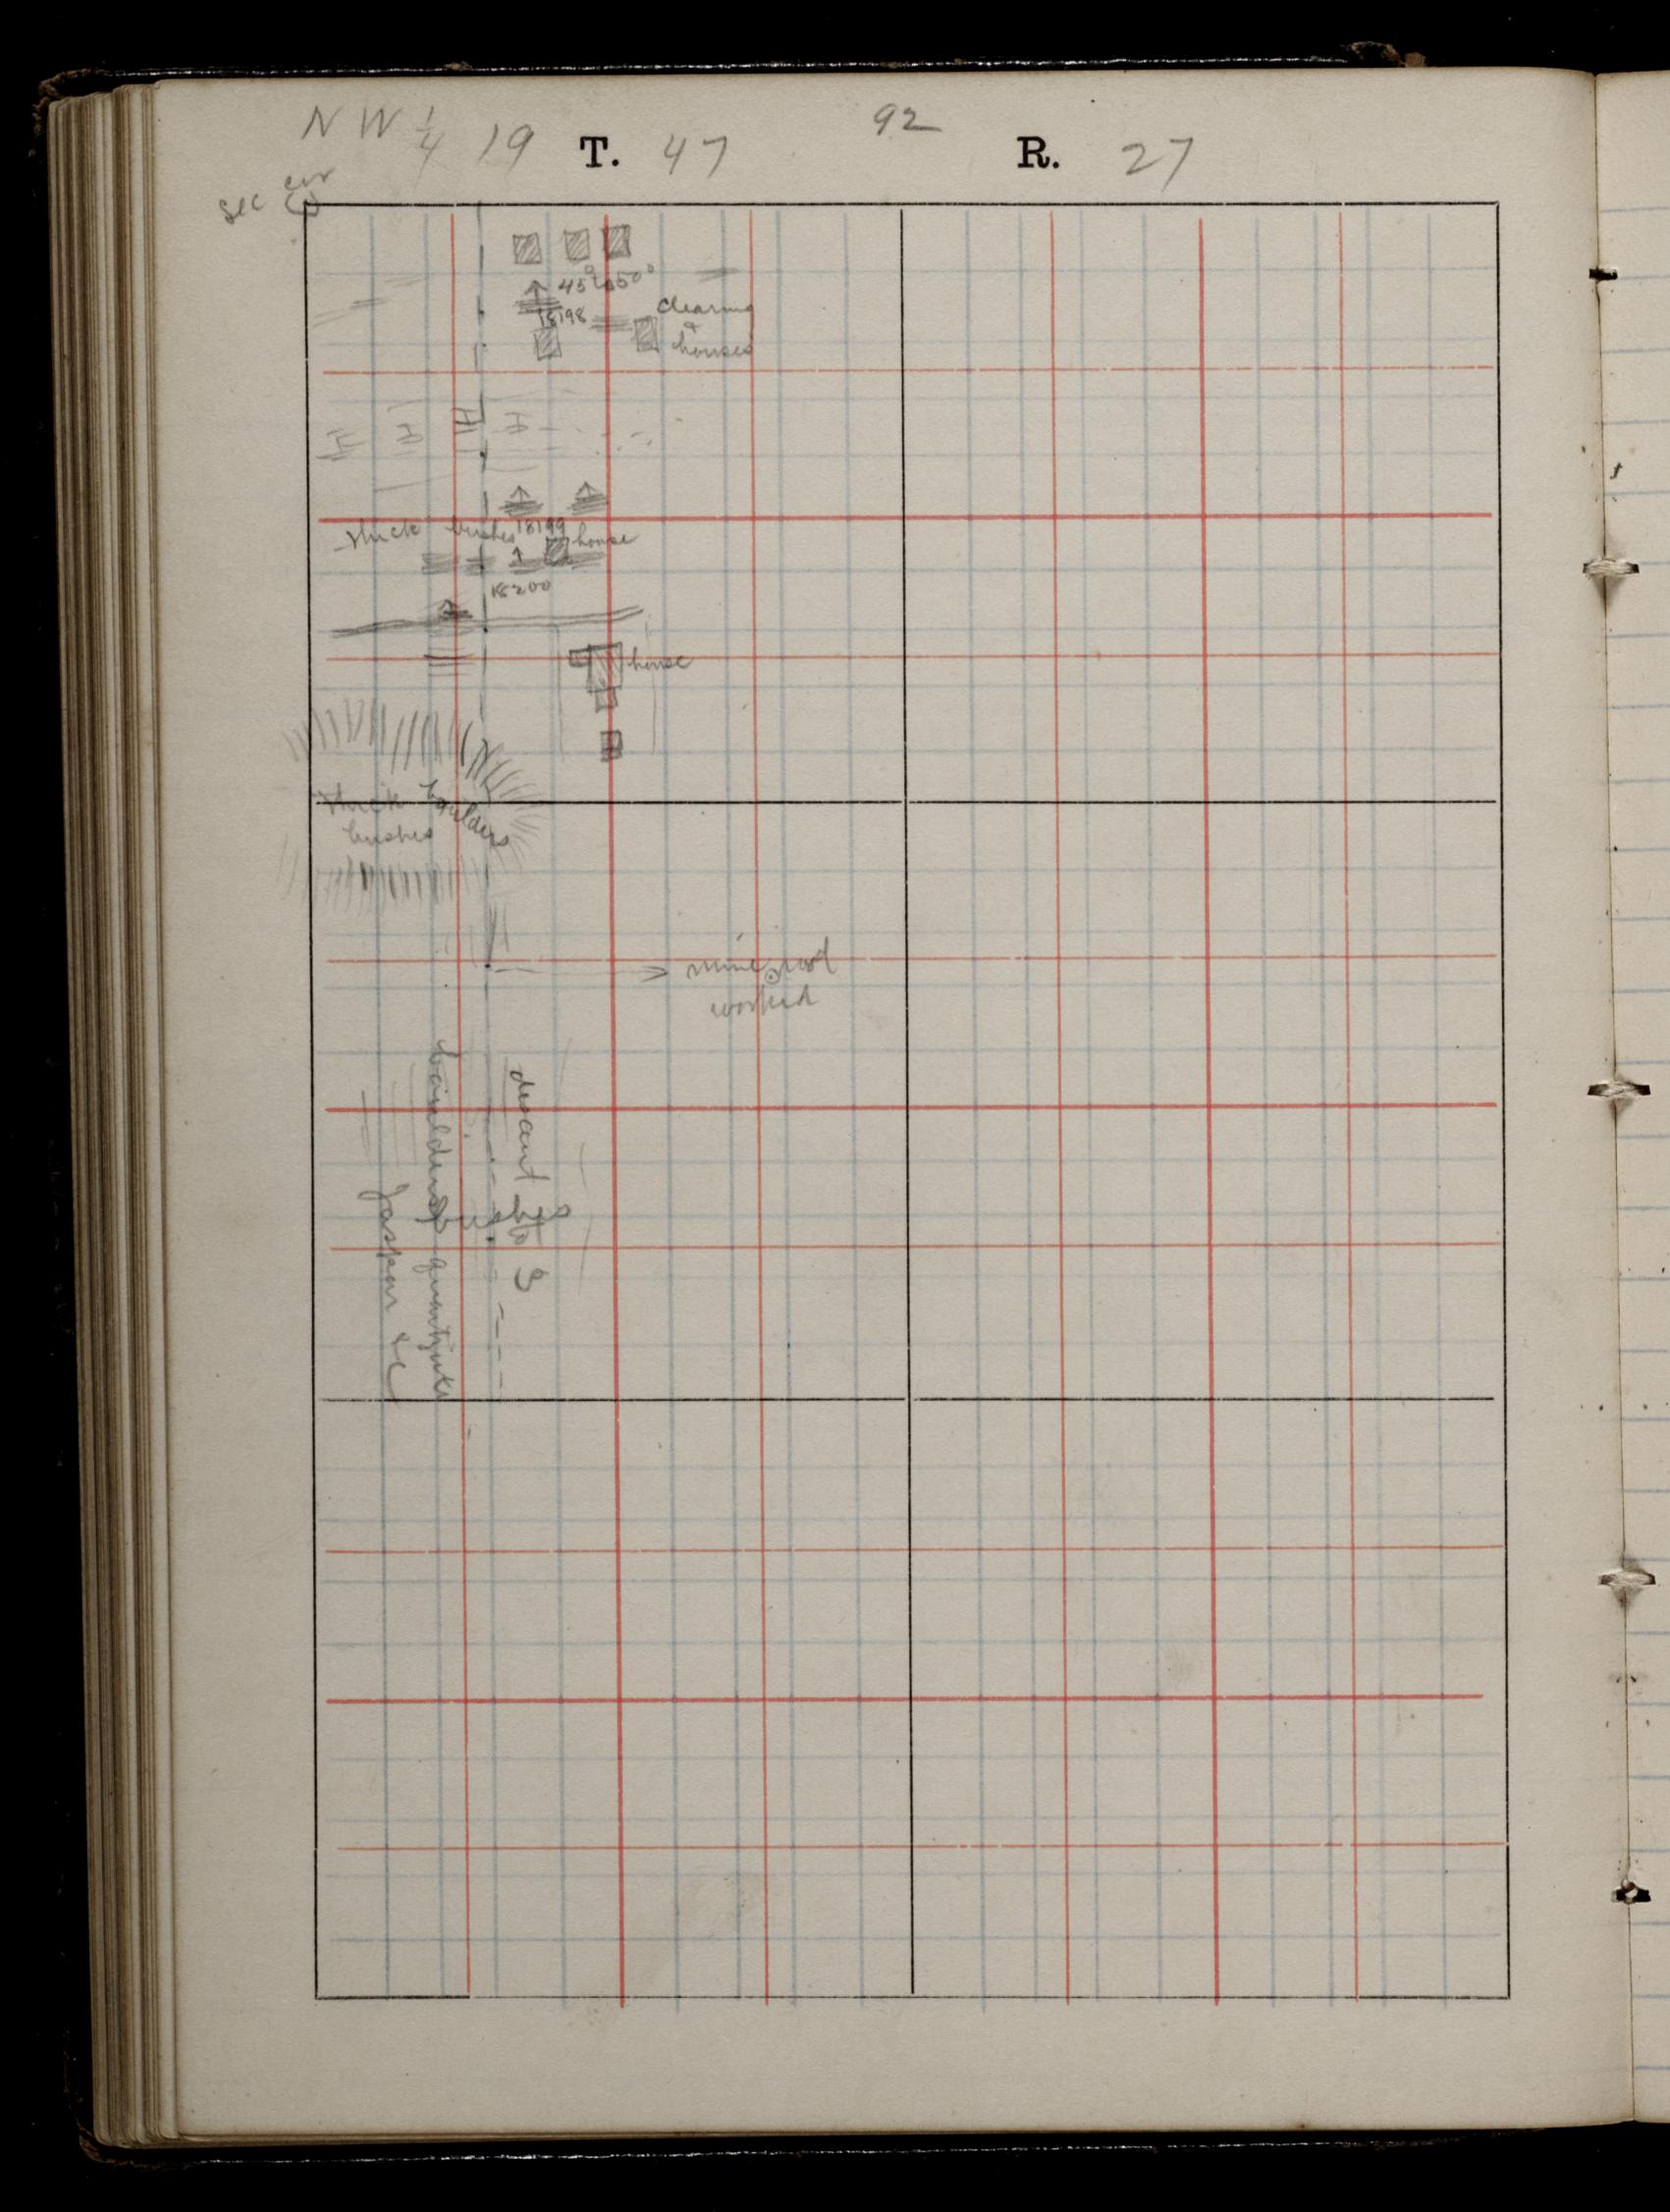 92
NW 1/4 19 T. 47 R. 27
sec cor
45° to 50°
18198
clearing
&
houses
H H H H
18199
thick bushes
house
18200
house
thick boulders
bushes
mine not
worked
descent to S
boulders quartzite
Jasper &c